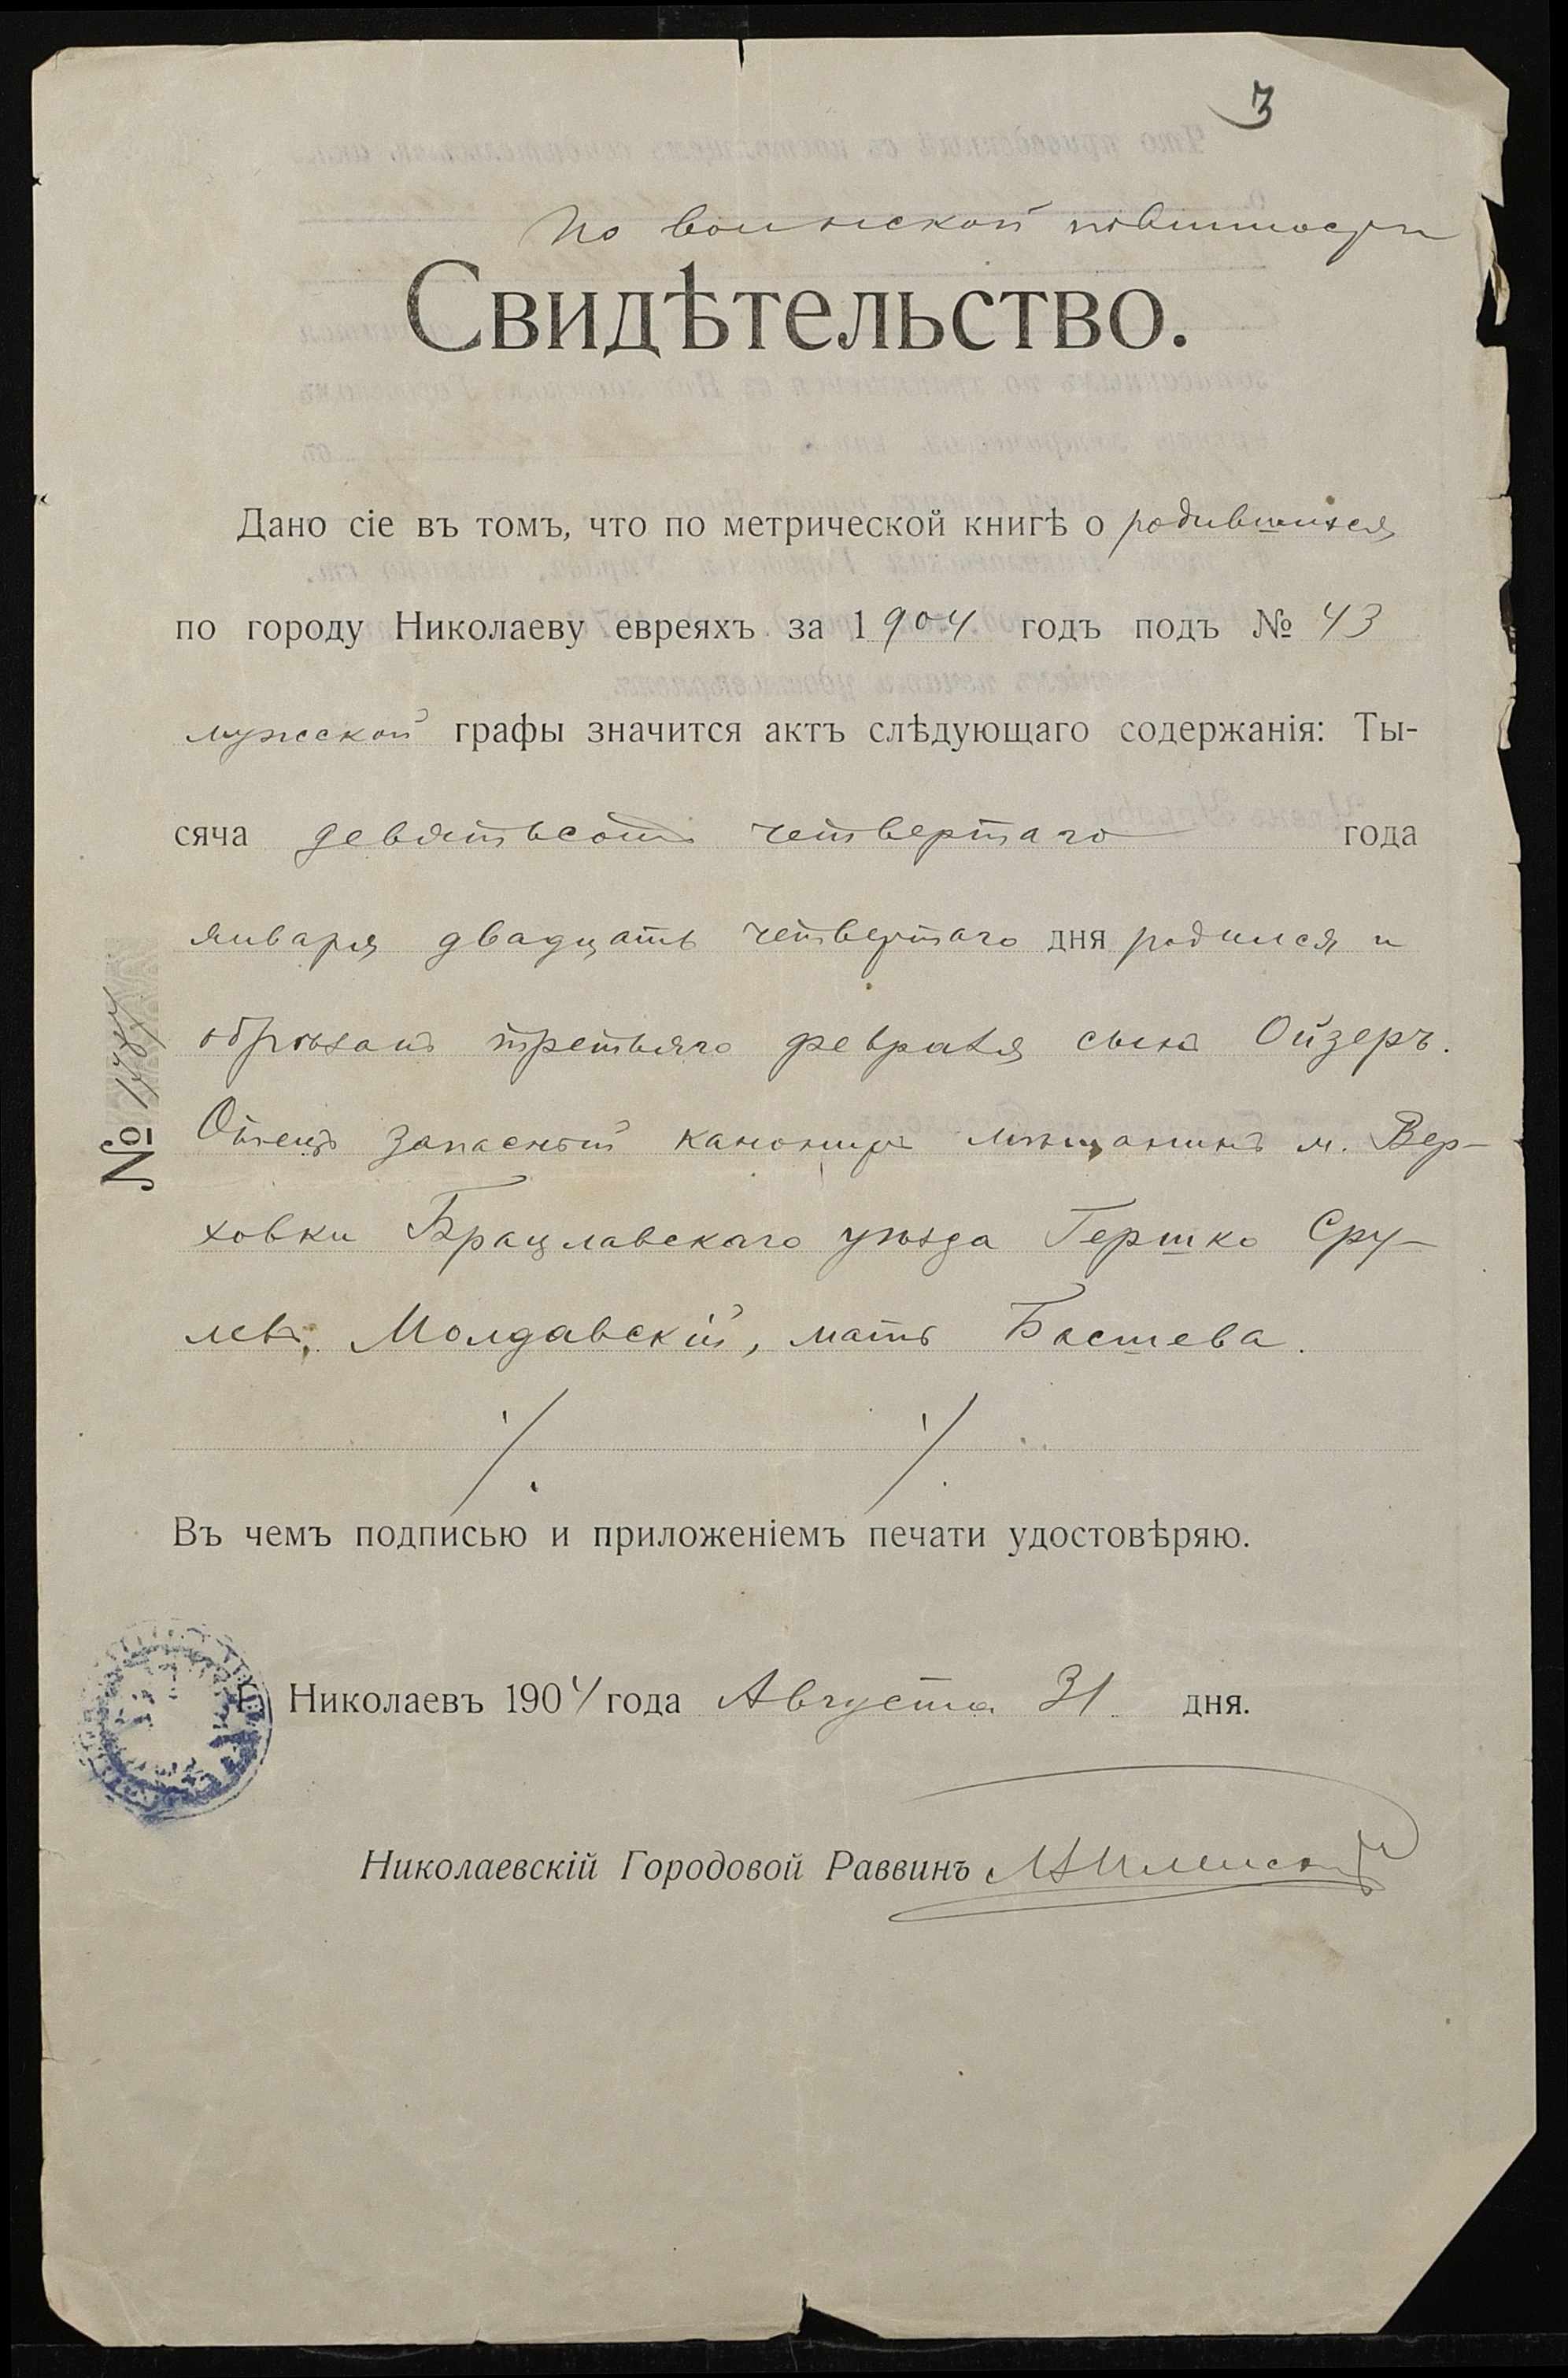 3
по воинской повинности
Свидѣтельство.
Дано сіе въ томъ, что по метрической книгѣ о родившихся
по городу Николаеву евреяхъ за 1904 годъ подъ № 43
мужской графы значится актъ слѣдующаго содержанія: Ты-
сяча девятьсотъ четвертаго года
января двадцать четвертаго дня родился и
обрѣзанъ третьяго февраля сынъ Ойзеръ.
Отецъ запасный канониръ мѣщанинъ м. Вер-
ховки Брацлавскаго уѣзда Гершко Сру-
левъ Молдавскій, мать Басшева.
Въ чемъ подписью и приложеніемъ печати удостовѣряю.
Г. Николаевъ 1904 года Августа 31 дня.
Николаевскій Городовой Раввинъ
№